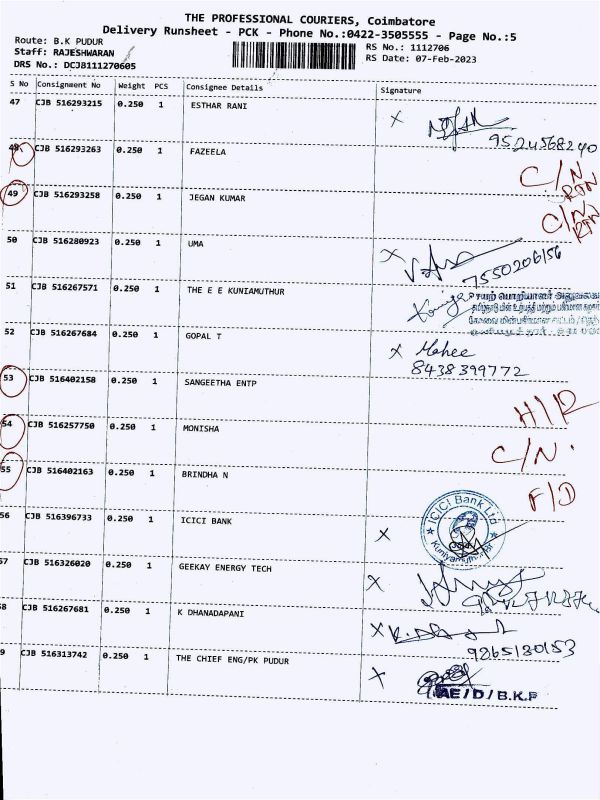 THE PROFESSIONAL COURIERS, Coimbatore
Delivery Runsheet - PCK - Phone No.:0422-3505555 - Page No.:5
Route: B.K PUDUR
RS No.: 1112706
Staff: RAJESHWARAN
RS Date: 07-Feb-2023
DRS No.: DCJB111270605
S No Consignment No Weight PCS Consignee Details Signature
47 CJB 516293215 0.250 1 ESTHAR RANI X
9524568240
48 CJB 516293263 0.250 1 FAZEELA
C/N
RTN
49 CJB 516293258 0.250 1 JEGAN KUMAR
C/N
RTN
50 CJB 516280923 0.250 1 UMA X
7550206156
51 CJB 516267571 0.250 1 THE E E KUNIAMUTHUR
செயற் பொறியாளர்
52 CJB 516267684 0.250 1 GOPAL T X Mahee
8438399772
53 CJB 516402158 0.250 1 SANGEETHA ENTP
H/R
54 CJB 516257750 0.250 1 MONISHA
C/N.
55 CJB 516402163 0.250 1 BRINDHA N
F/D
56 CJB 516396733 0.250 1 ICICI BANK X
ICICI Bank Ltd
Kuniyamuthur
57 CJB 516326020 0.250 1 GEEKAY ENERGY TECH X
58 CJB 516267681 0.250 1 K DHANADAPANI X
9865180153
59 CJB 516313742 0.250 1 THE CHIEF ENG/PK PUDUR X
AE/D/B.K.P